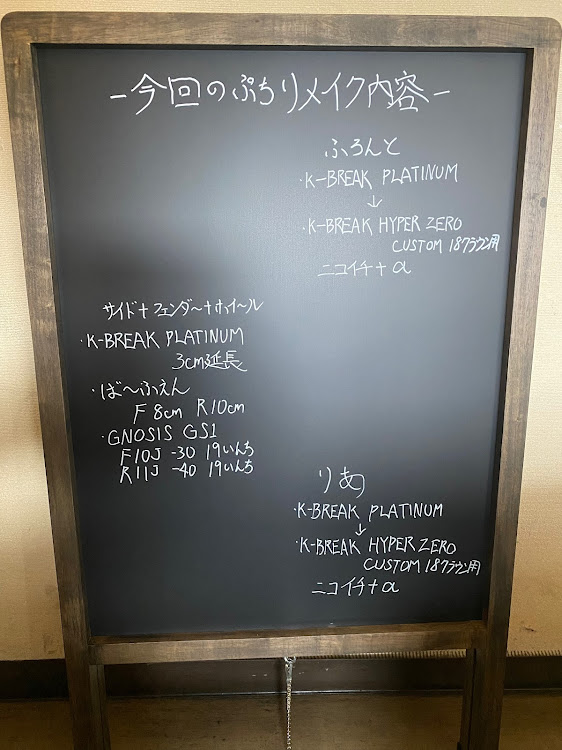 -今回のぷちリメイク内容-
ふろんと
・K-BREAK PLATINUM
↓
・K-BREAK HYPER ZERO
CUSTOM 18クラウン用
ニコイチ+α
サイド+フェンダ〜+ホイ〜ル
・K-BREAK PLATINUM
3cm延長
・ば〜ふぇん
F 8cm R10cm
・GNOSIS GS1
F10J -30 19いんち
R11J -40 19いんち
りあ
・K-BREAK PLATINUM
↓
・K-BREAK HYPER ZERO
CUSTOM 18クラウン用
ニコイチ+α